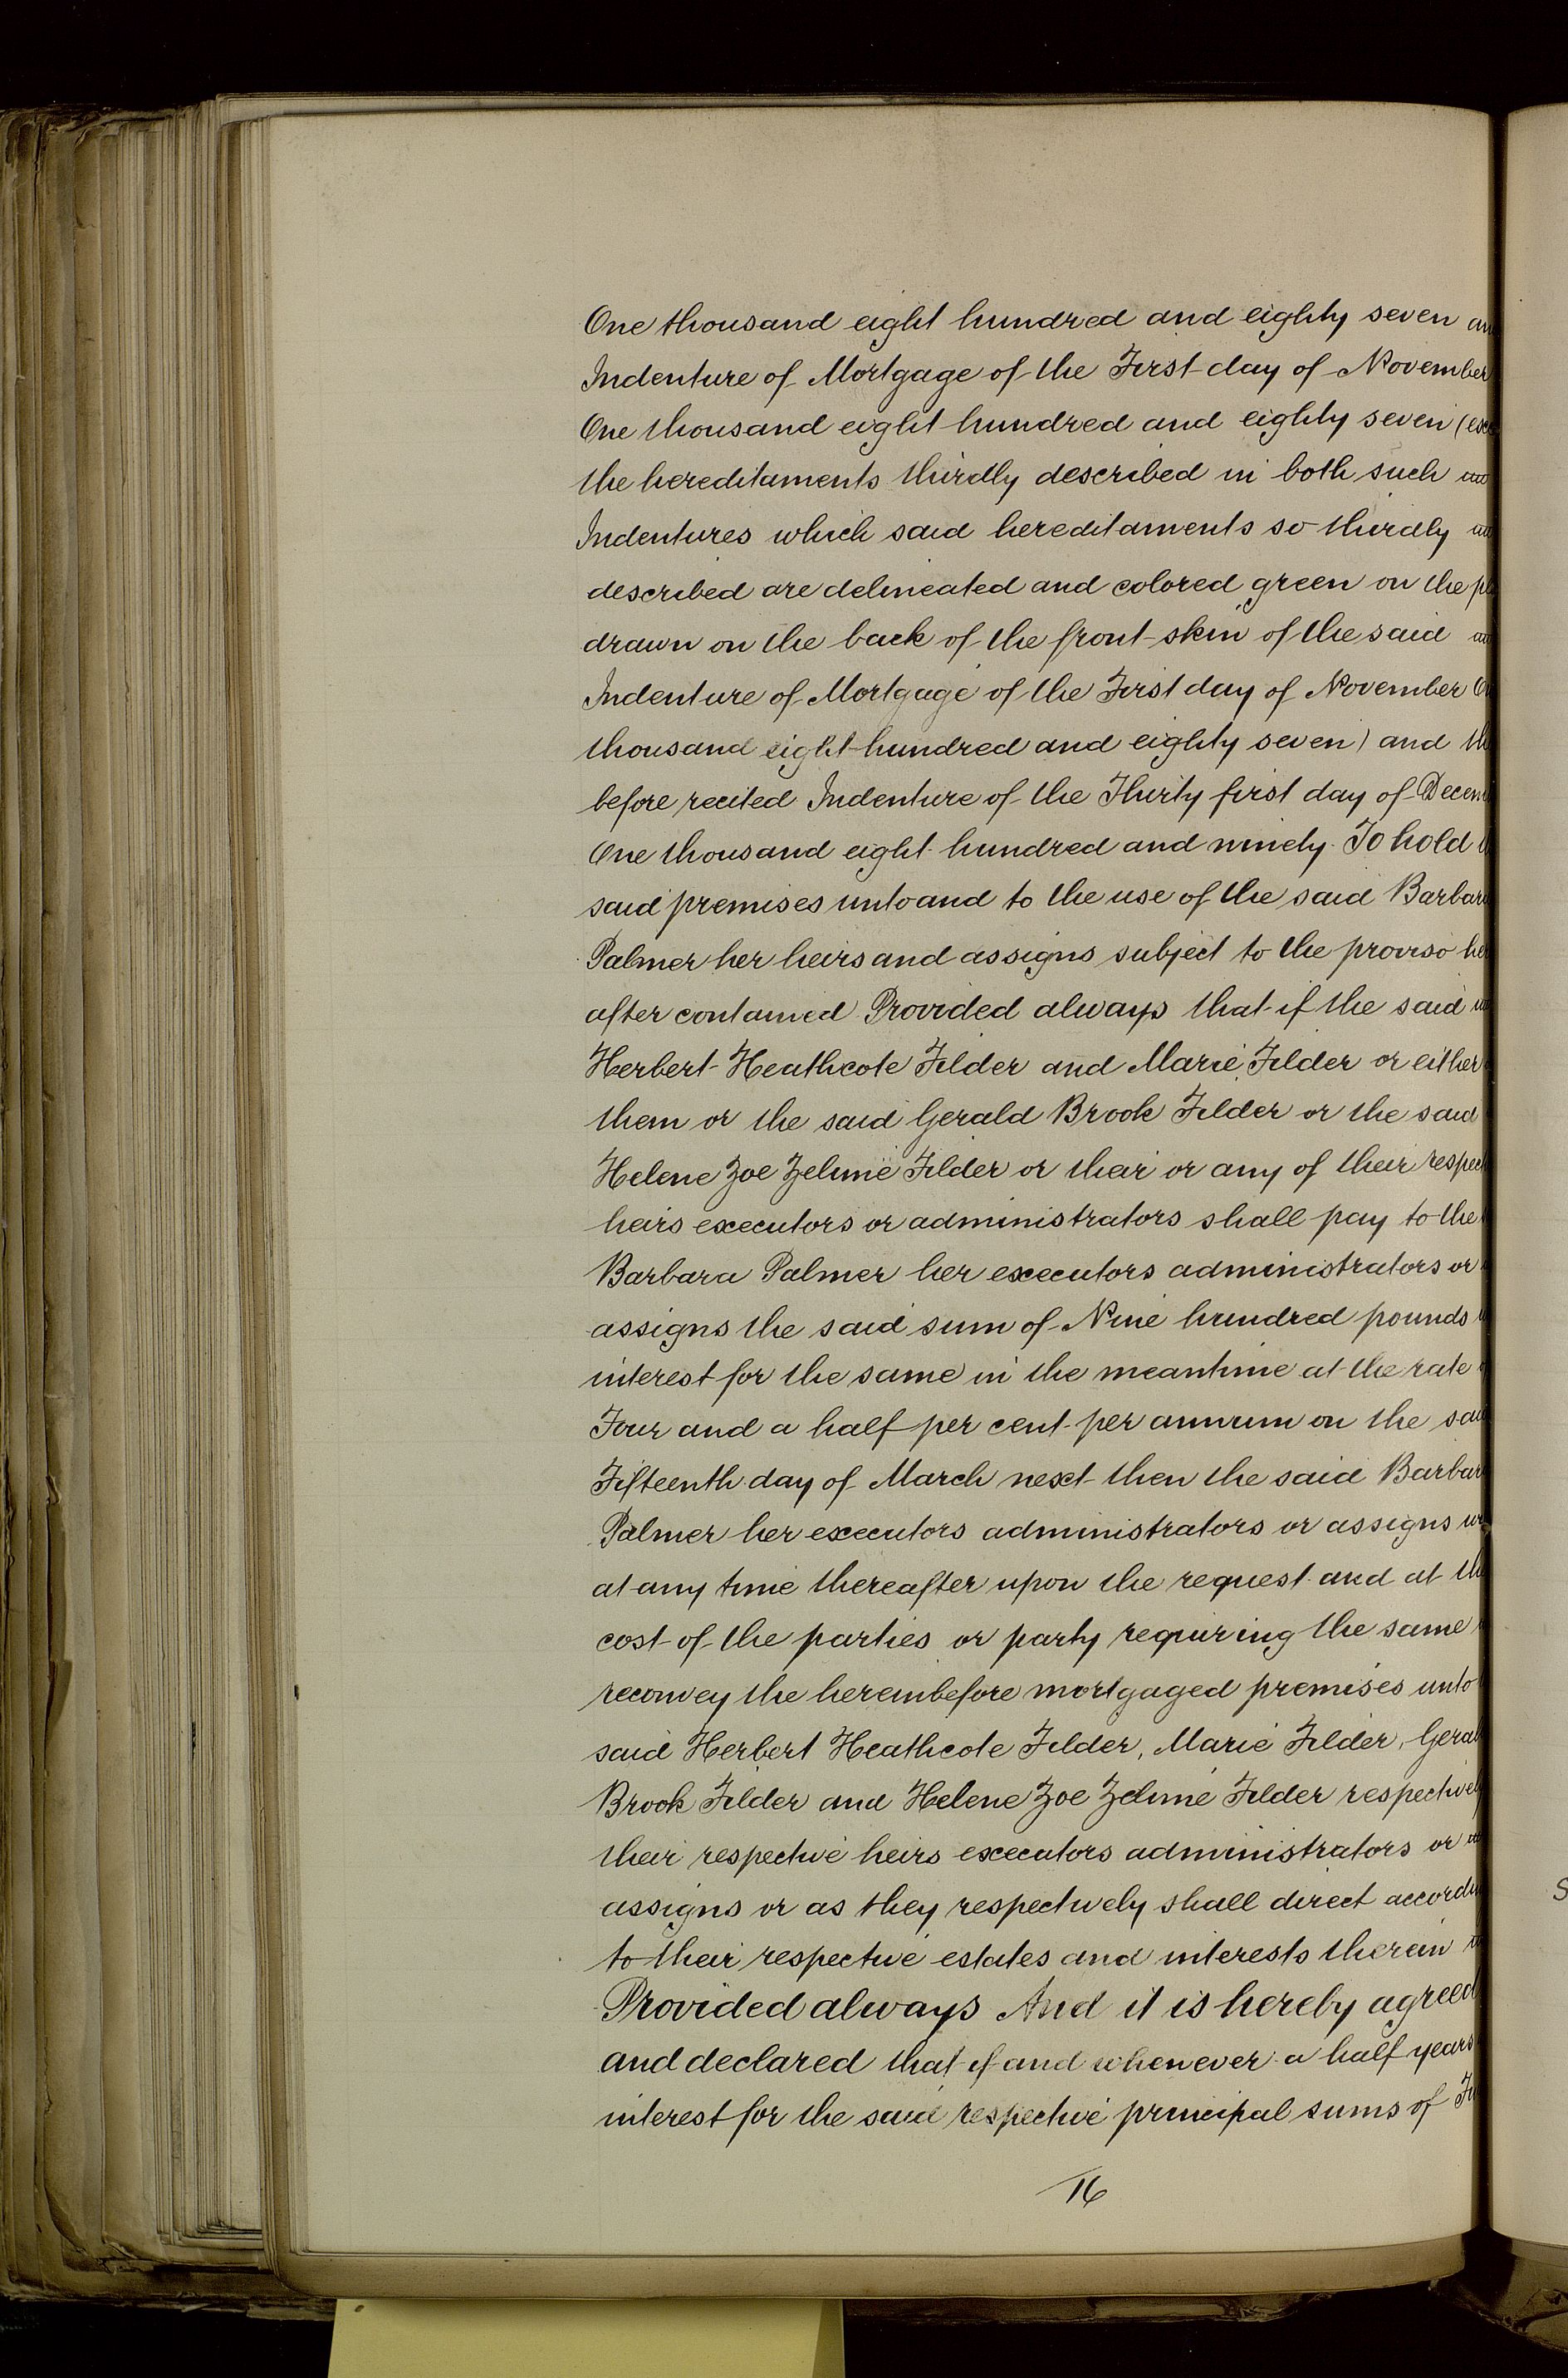 One thousand eight hundred and eighty seven
Indenture of Mortgage of the First day of November
One thousand eight hundred and eighty seven (
the hereditaments thirdly described in both such
Indentures which said hereditaments so thirdly
described are delineated and colored green on the
drawn on the back of the front skin of the said
Indenture of Mortgage of the First day of November
thousand eight hundred and eighty seven) and
before recited Indenture of the Thirty first day of
One thousand eight hundred and ninety To hold
said premises unto and to the use of the said Barbara
Palmer her heirs and assigns subject to the proviso
after contained Provided always that if the said
Herbert Heathcote Filder and Marie Filder or either
them or the said Gerald Brook Filder or the said
Helene Zoe Zelime Filder or their or any of their
heirs executors or administrators shall pay to the
Barbara Palmer her executors administrators or
assigns the said sum of Nine hundred pounds
interest for the same in the meantime at the rate
Four and a half per cent per annum on the
Fifteenth day of March next then the said
Palmer her executors administrators or assigns
at any time thereafter upon the request and at
cost of the parties or party requiring the same
reconvey the hereinbefore mortgaged premises unto
said Herbert Heathcote Filder, Marie Filder,
Brook Filder and Helene Zoe Zelime Filder
their respective heirs executors administrators or
assigns or as they respectively shall direct
to their respective estates and interests therein
Provided always And it is hereby agreed
and declared that if and whenever a half years
interest for the said respective principal sums of
16